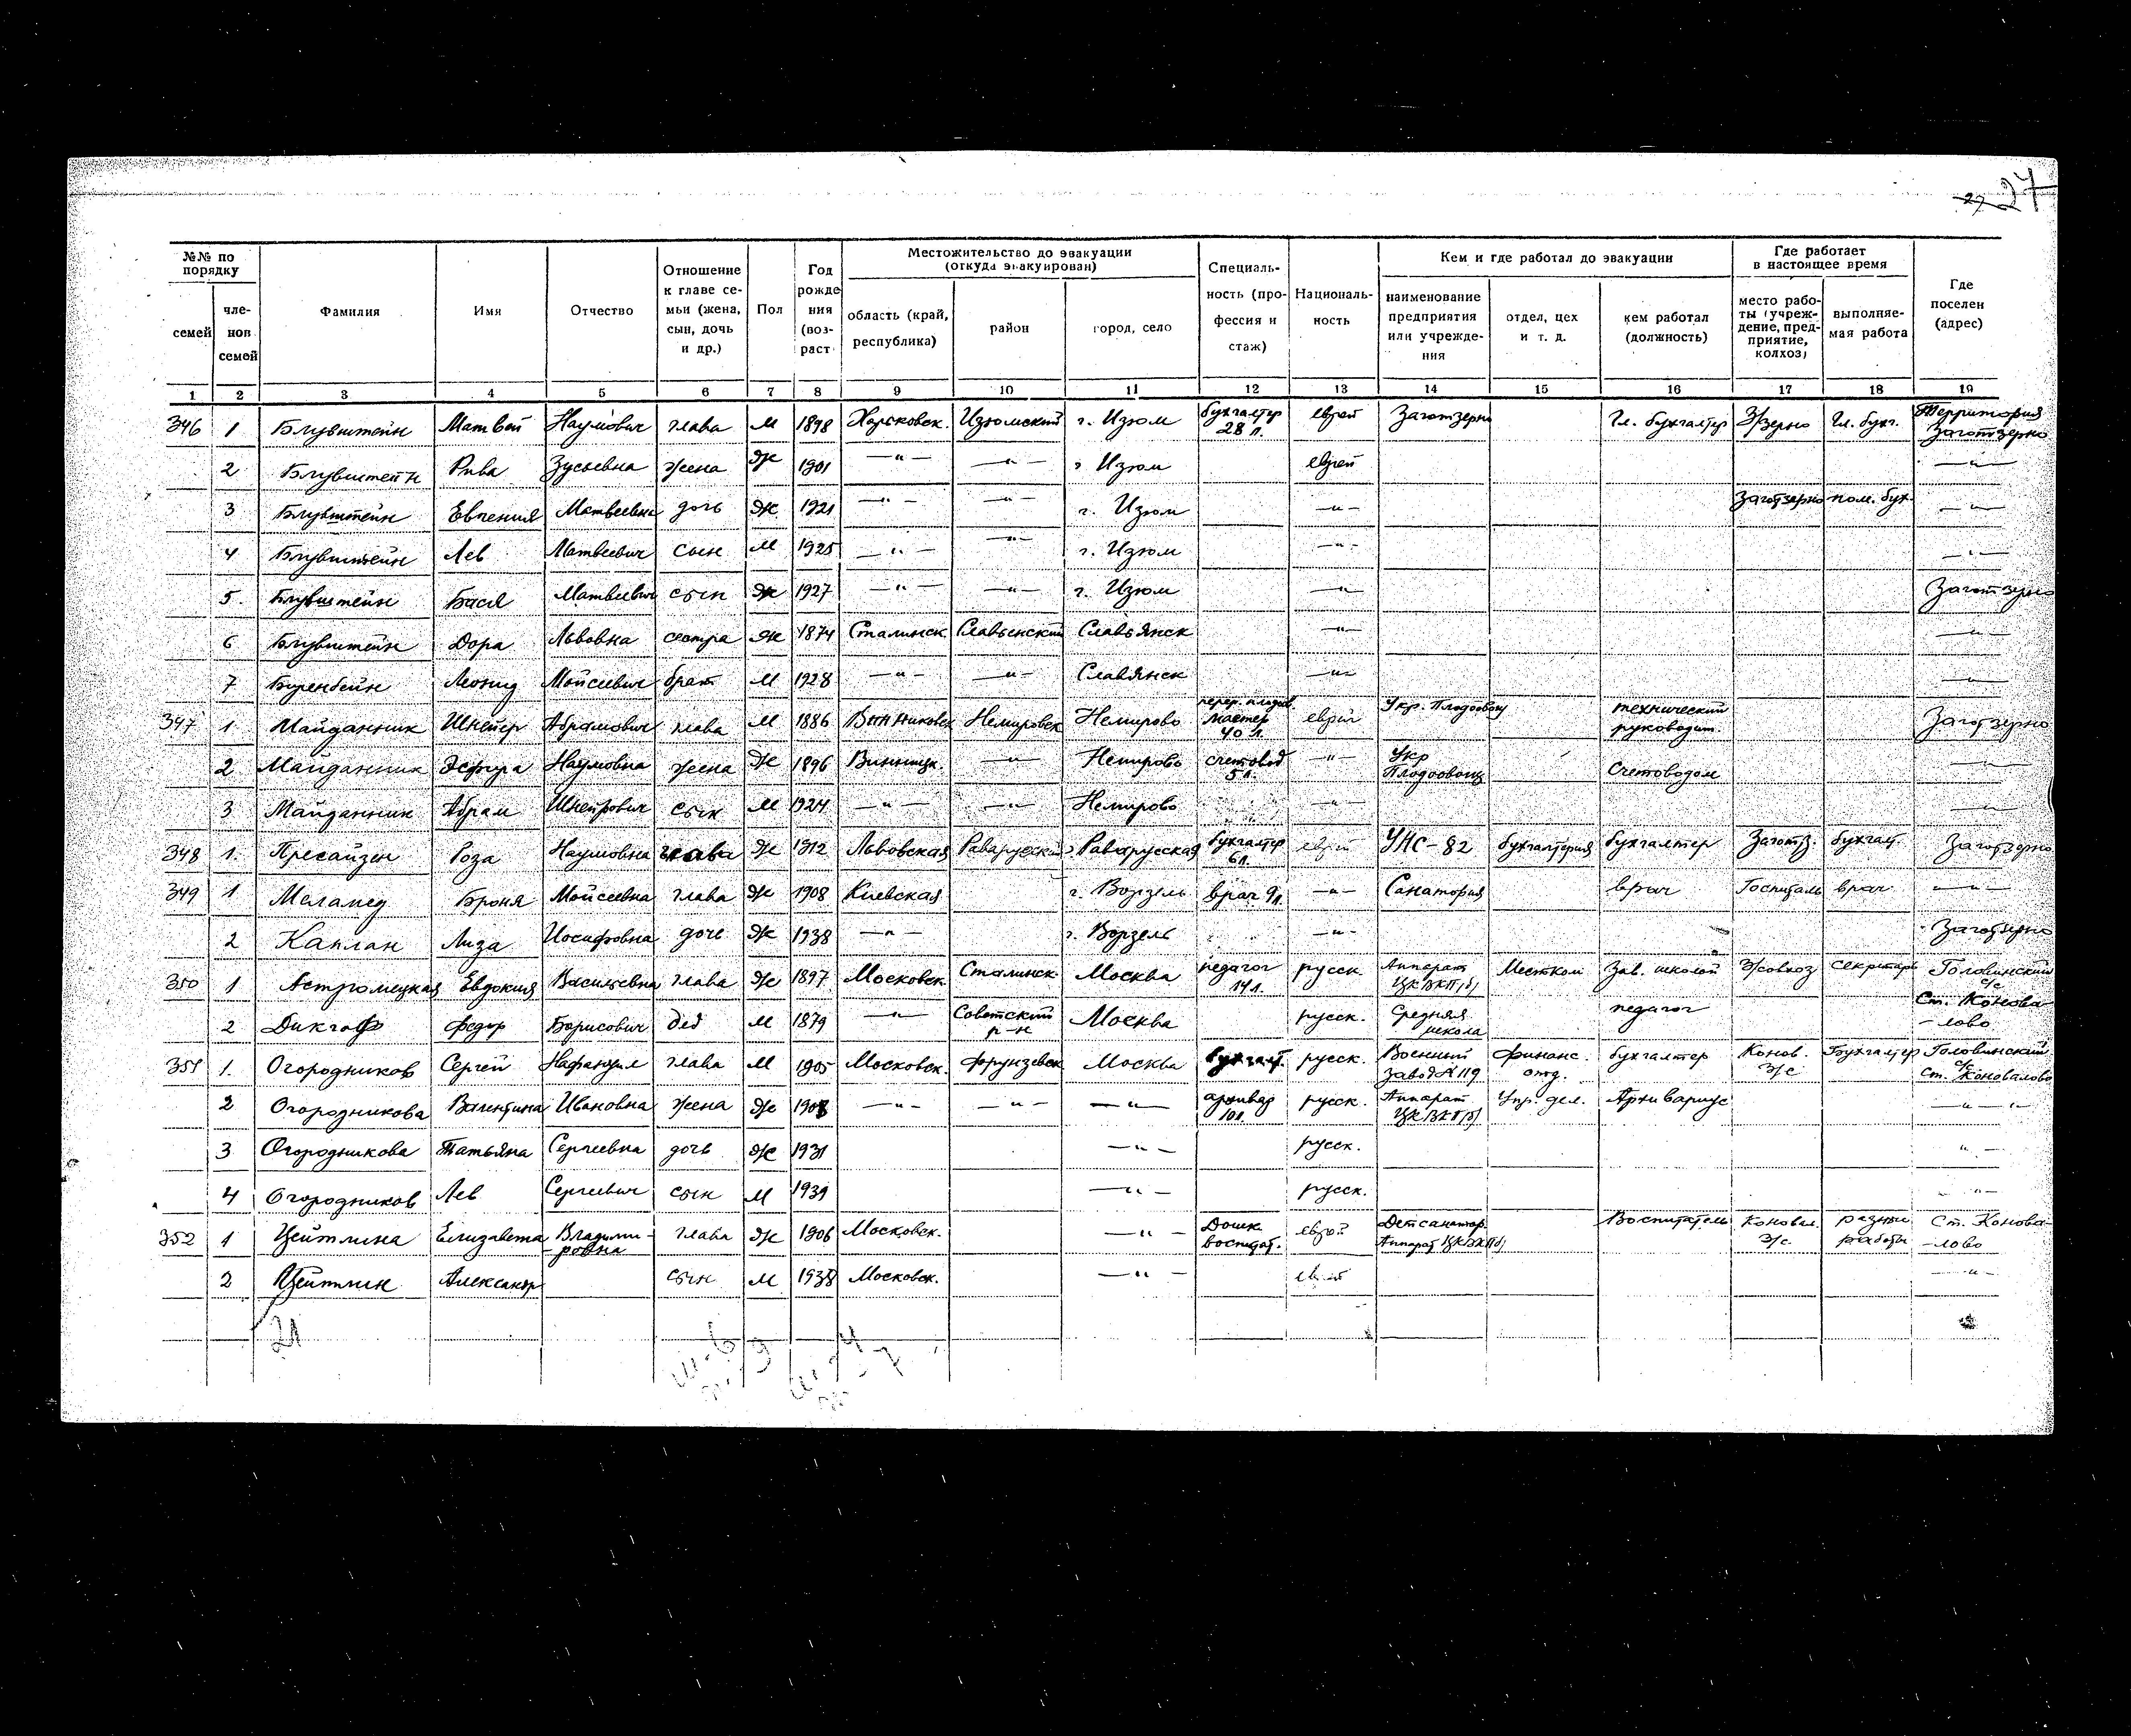 27 27
№№ по порядку
семей
членов семей
Фамилия
Имя
Отчество
Отношение к главе семьи (жена, сын, дочь и др.)
Пол
Год рождения (возраст
Местожительство до эвакуации (откуда эвакуирован)
область (край, республика)
район
город, село
Специальность (профессия и стаж)
Националь-ность
Кем и где работал до эвакуации
наименование предприятия или учреждения
отдел, цех и т. д.
кем работал (должность)
Где работает в настоящее время
место работы (учреждение, предприятие, колхоз)
выполняемая работа
Где поселен (адрес)
1 2 3 4 5 6 7 8 9 10 11 12 13 14 15 16 17 18 19
346 1 Блувштейн Матвей Наумович глава М 1898 Харьковск. Изюмский г. Изюм бухгалтер 28 л. еврей Заготзерно Гл. бухгалтер З/зерно Гл. бухг. Территория Заготзерно
2 Блувштейн Рива Зусьевна жена Ж 1901 —"— —"— г Изюм еврей —"—
3 Блувштейн Евгения Матвеевна дочь Ж 1921 —"— —"— г. Изюм —"— Заготзерно пом. бух —"—
4 Блувштейн Лев Матвеевич сын М 1925 —"— —"— г. Изюм —"— —"—
5. Блувштейн Бася Матвеевич сын Ж 1927 —"— —"— г. Изюм —"— Заготзерно
6 Блувштейн Дора Львовна сестра Ж 1874 Сталинск Славенский Славьянск —"— —"—
7 Леонид Мойсеевич брат М 1928 —"— —"— Славянск —"— —"—
347 1 Майданник Шнейер Абрамович глава М 1886 Немировск Немирово мастер 40 л. еврей Укр. Плодоовощ технический руководит. Заготзерно
2 Майданник Эсфира Наумовна жена Ж 1896 Винницк. —"— Немирово счетовод 5 л. —"— Укр Плодоовощ Счетоводом —"—
3 Майданник Абрам сын М 1924 —"— —"— Немирово —"— —"—
348 1. Пресайзен Роза Наумовна глава Ж 1912 Львовская Раварусский г Раварусская бухгалтер 6 л. еврей УНС-82 бухгалтерия бухгалтер Заготз. бухгалт. Заготзерно
349 1 Меламед Броня Мойсеевна глава Ж 1908 Киевская г. Ворзель врач 9 л. —"— Санатория врач Госпиталь врач —"—
2 Каплан Лиза Иосифовна доче Ж 1938 —"— г. Ворзель —"— Заготзерно
350 1 Астромецкая Евдокия Васильевна глава Ж 1897 Московск. Сталинск Москва педагог 14 л. русск Аппарат ЦК ВКП/б/ Местком Зав. школой З/совхоз Секретарь Головинский с/с
2 Дикгоф Федор Борисович дед М 1879 —"— Советский р-н Москва русск. Средняя школа педагог Ст. Коновалово
351 1. Огородников Сергей глава М 1905 Московск. Фрунзевск Москва бухгалт. русск. Военный завод № 119 Финанс. отд. бухгалтер Конов. З/с Бухгалтер Головинский с/с Ст. Коновалово
2 Огородникова Валентина Ивановна жена Ж 1908 —"— —"— —"— архивар 10 л. русск. Аппарат ЦК ВКП/б/ Упр. дел. Архивариус —"—
3 Огородникова Татьяна Сергеевна дочь Ж 1931 —"— русск. —"—
4 Огородников Лев Сергеевич сын М 1939 —"— русск. —"—
352 1 Цейтлина Елизавета Владимировна глава Ж 1906 Московск. —"— Дошк. воспитат. еврей Детсанатор. Аппарат ЦК ВКП/б/ Воспитатель Коновал. З/с. разные работы Ст. Коновалово
2 Цейтлин Александр сын М 1938 Московск. —"— еврей —"—
21